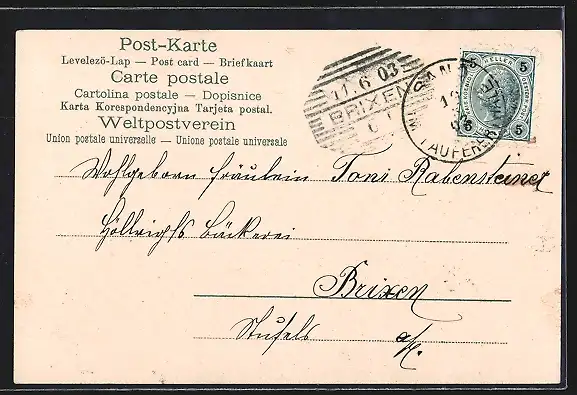 Post-Karte
Levelezö-Lap — Post card — Briefkaart
Carte postale
Cartolina postale — Dopisnice
Karta Korespondencyjna Tarjeta postal.
Weltpostverein
Union postale universelle — Unione postale universale
11.6.03
BRIXEN
SAND
TAUFERS
5 HELLER 5
5 5
Wohlgeborn Fräulein Toni Rabensteiner
Bäckerei
Brixen
Stufels a/E.